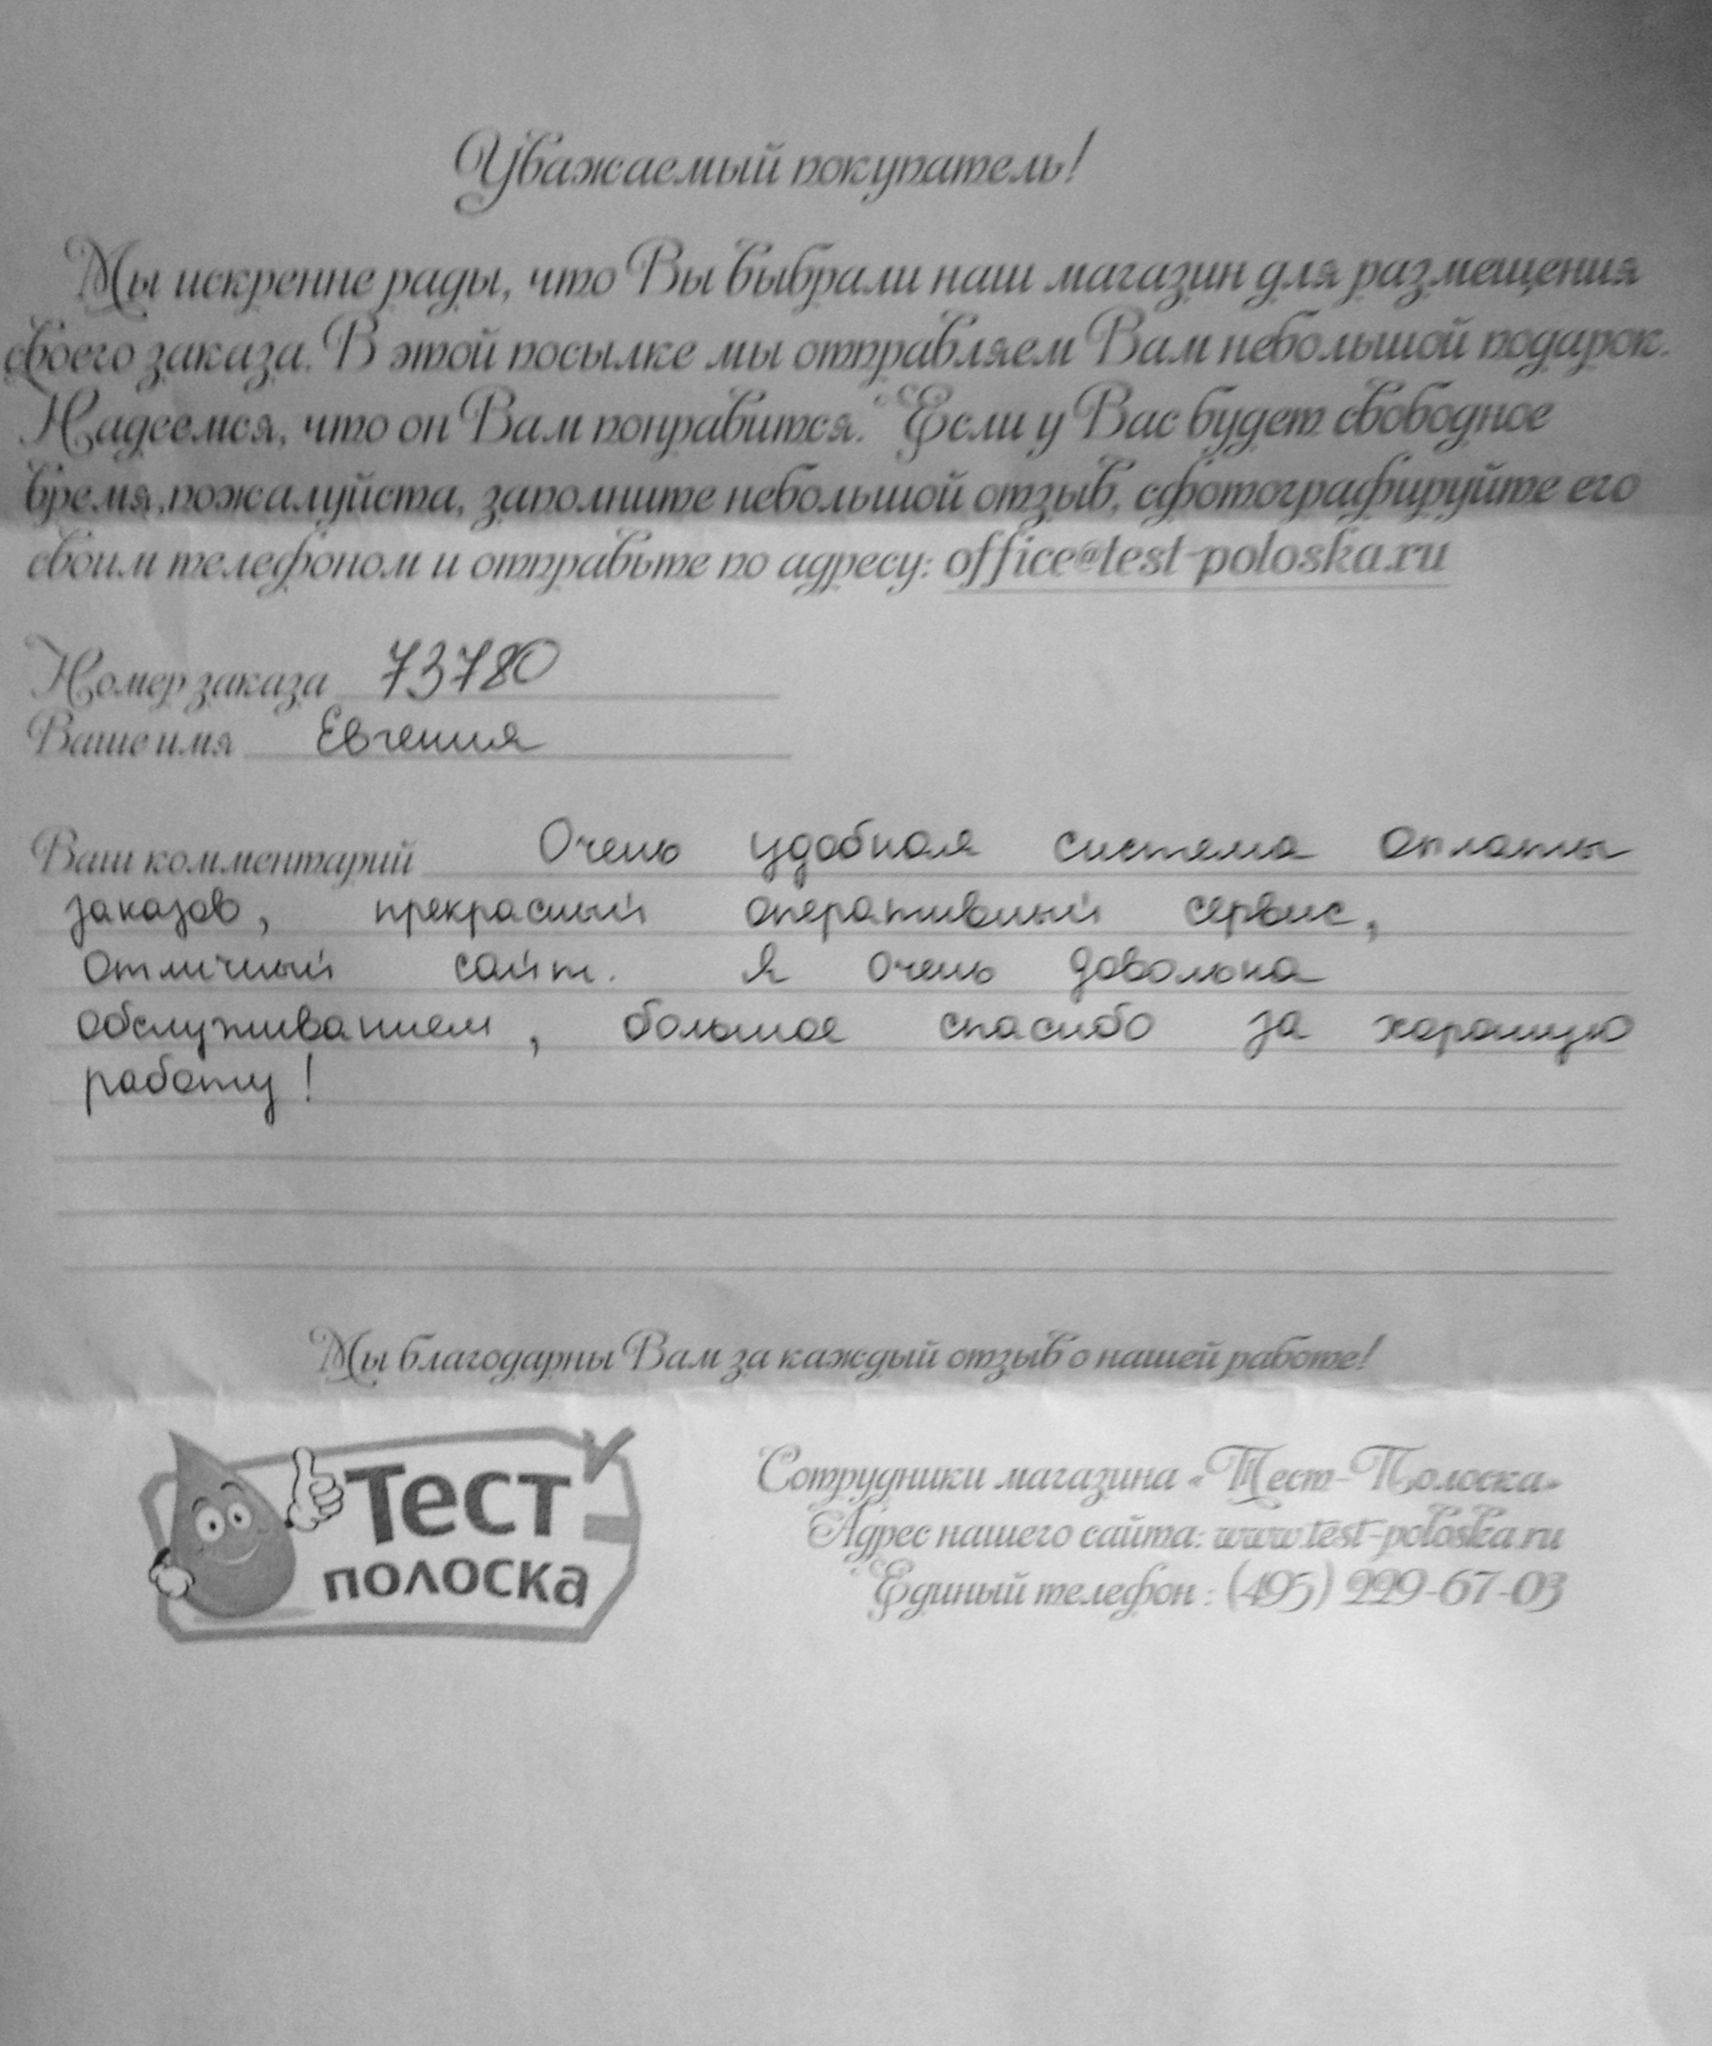 Уважаемый покупатель!
Мы искренне рады, что Вы выбрали наш магазин для размещения
своего заказа. В этой посылке мы отправляем Вам небольшой подарок.
Надеемся, что он Вам понравится. Если у Вас будет свободное
время, пожалуйста, заполните небольшой отзыв, сфотографируйте его
своим телефоном и отправьте по адресу: office@test-poloska.ru
Номер заказа 73780
Ваше имя Евгения
Ваш комментарий Очень удобная система оплаты
заказов, прекрасный оперативный сервис,
отличный сайт. Я очень довольна
обслуживанием, большое спасибо за хорошую
работу!
Мы благодарны Вам за каждый отзыв о нашей работе!
Тест
полоска
Сотрудники магазина «Тест-Полоска»
Адрес нашего сайта: www.test-poloska.ru
Единый телефон : (495) 229-67-03